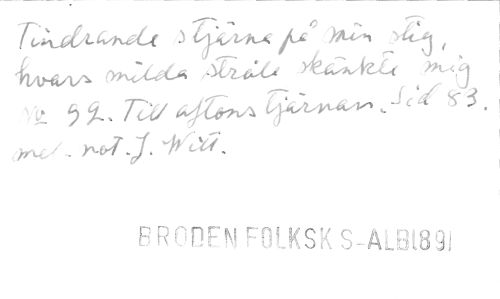 Tindrande stjärna på min stig,
hvars milda stråle skänkte mig
No 92. Till aftonstjärnan. Sid 83.
mel. not. J. Witt.
BRODEN FOLKSK S-ALB(89)